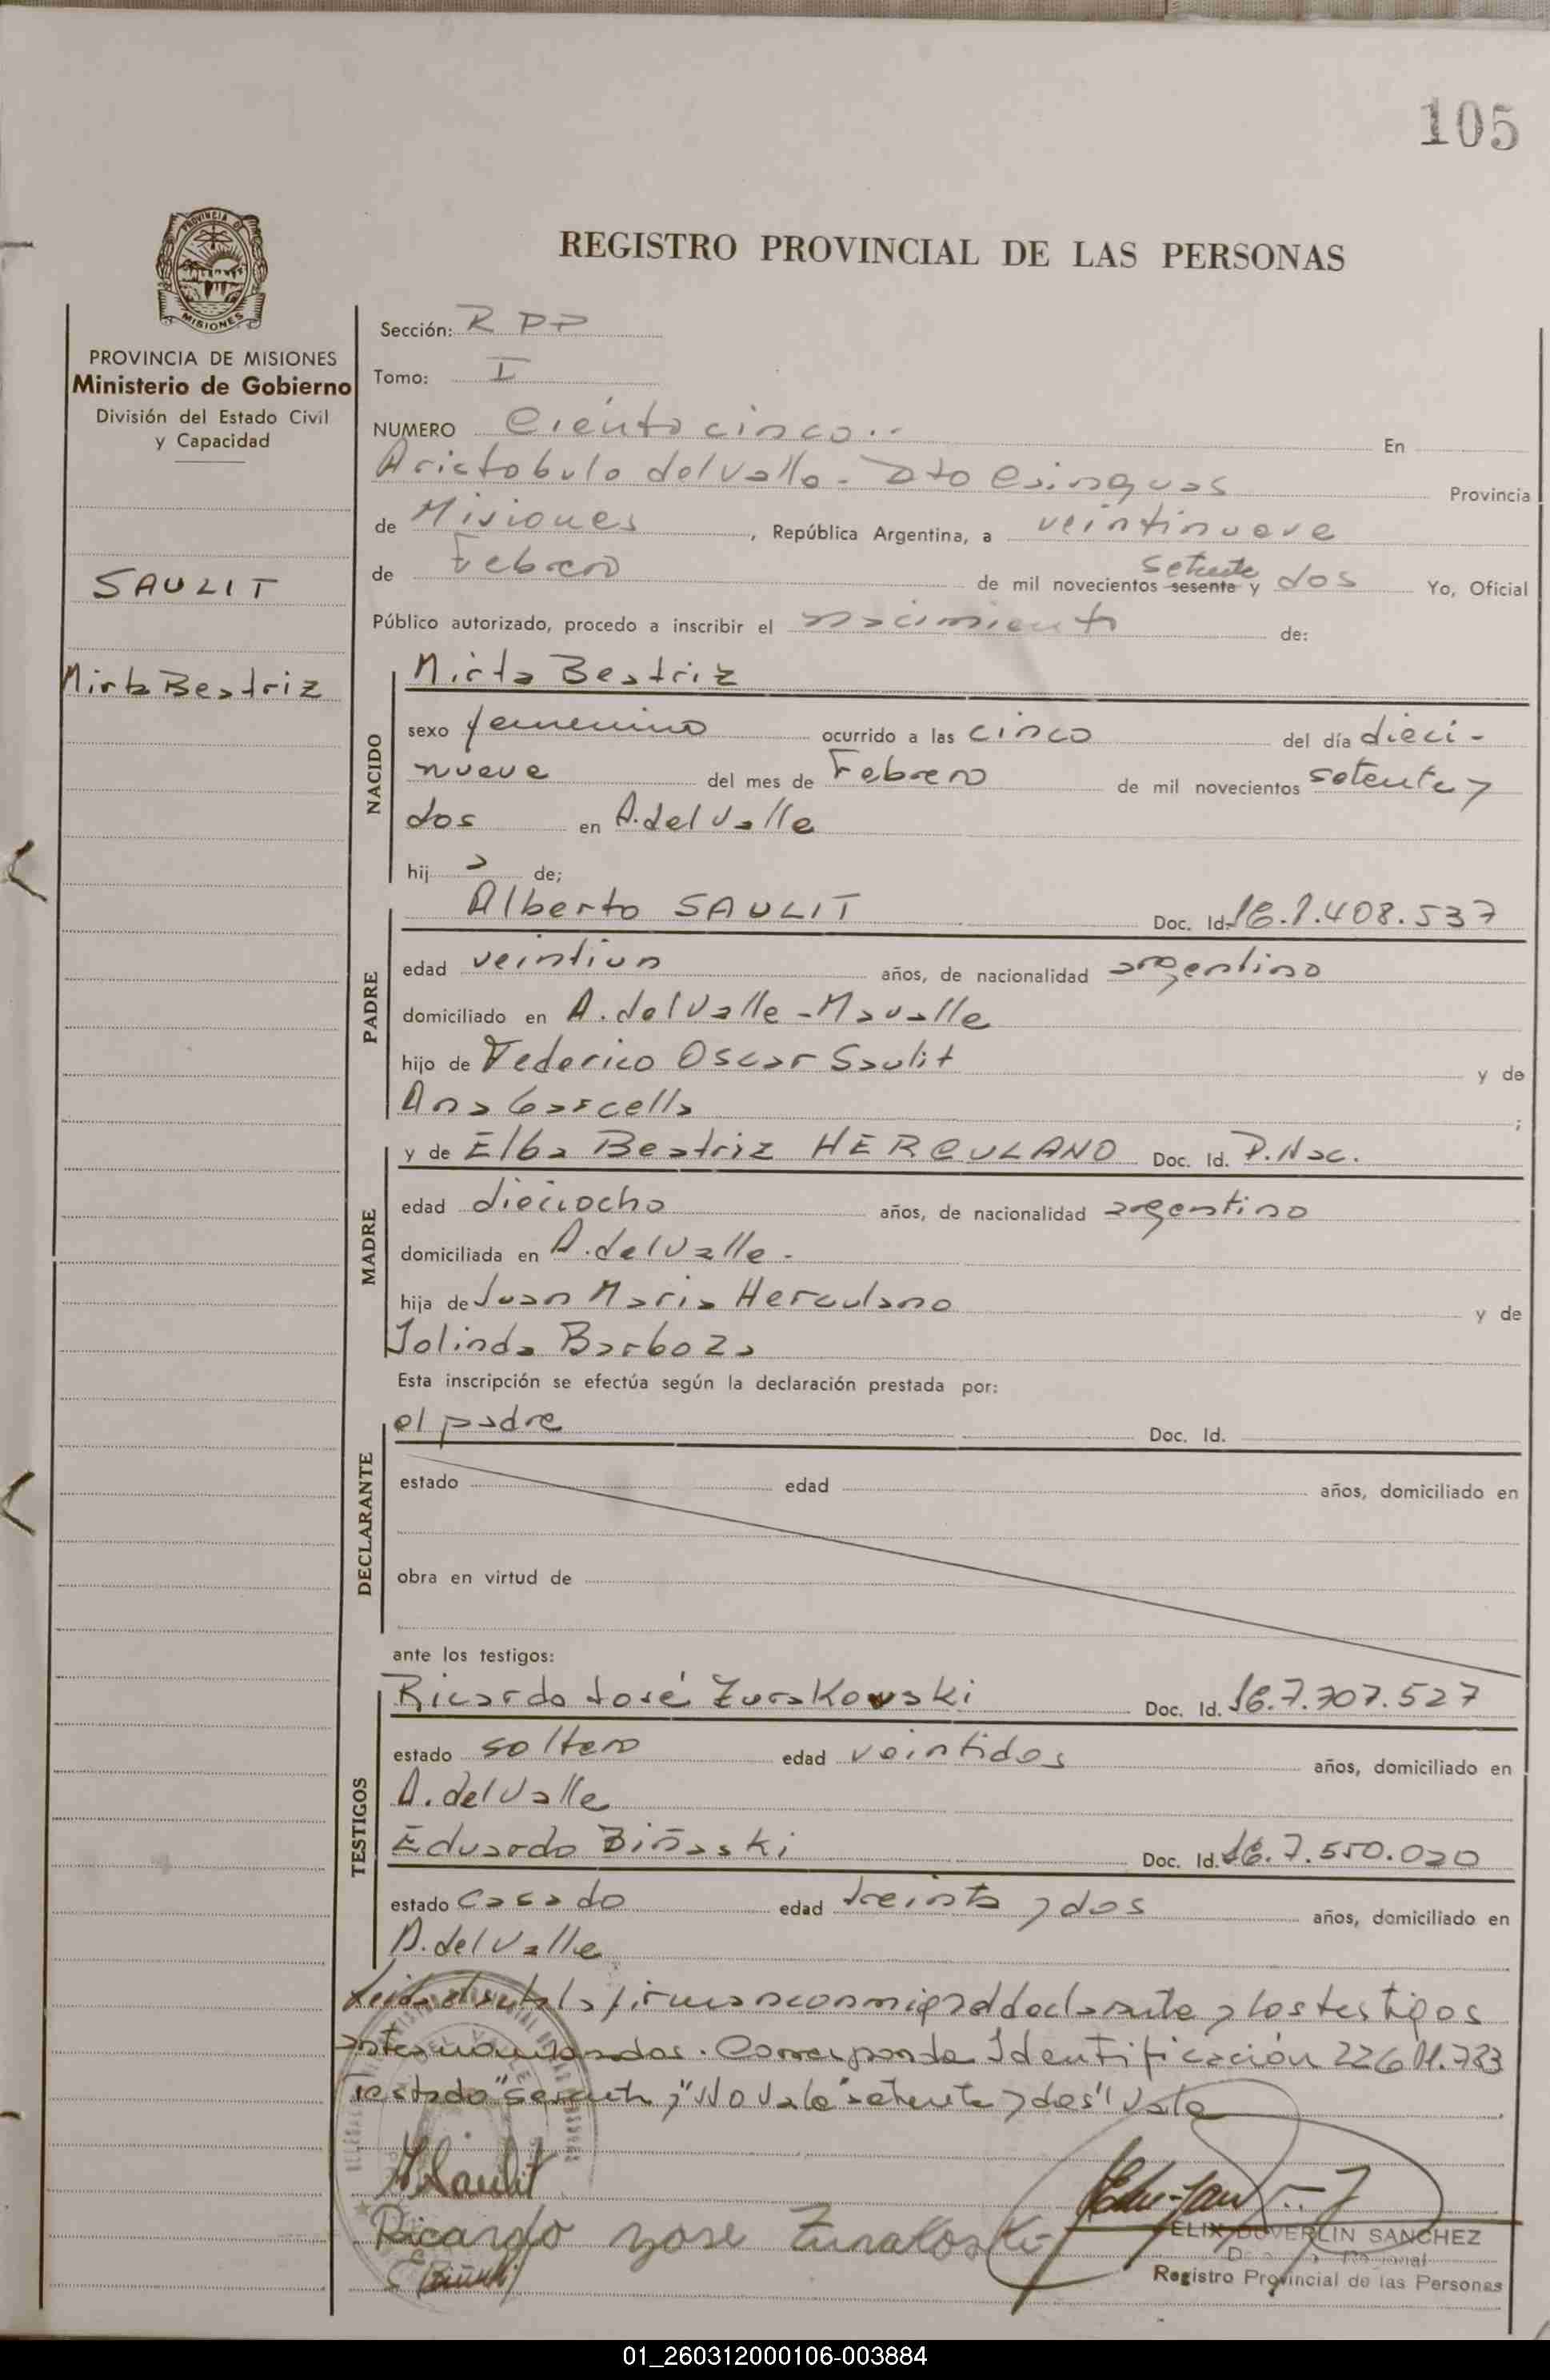 105
PROVINCIA DE
MISIONES
REGISTRO PROVINCIAL DE LAS PERSONAS
PROVINCIA DE MISIONES
Ministerio de Gobierno
División del Estado Civil
y Capacidad
SAULIT
Mirta Beatriz
Sección: R P P
Tomo: I
NUMERO Ciento cinco.. En
Aristobulo del Valle - Dto Cainguas Provincia
de Misiones, República Argentina, a veintinueve
setenta
de Febrero de mil novecientos sesenta y dos Yo, Oficial
Público autorizado, procedo a inscribir el nacimiento de:
NACIDO
Mirta Beatriz
sexo femenino ocurrido a las cinco del día dieci-
nueve del mes de Febrero de mil novecientos setenta y
dos en A. del Valle
hij a de;
PADRE
Alberto SAULIT Doc. Id.
edad veintiun años, de nacionalidad argentino
domiciliado en A. del Valle - Mavalle
hijo de Federico Oscar Saulit y de
Ana ;
MADRE
y de Elba Beatriz HERCULANO Doc. Id. P. Nac.
edad dieciocho años, de nacionalidad argentino
domiciliada en A. del Valle -
hija de Juan Maria Herculano y de
Jolinda Barboza
Esta inscripción se efectúa según la declaración prestada por:
DECLARANTE
el padre Doc. Id.
estado edad años, domiciliado en
obra en virtud de
ante los testigos:
TESTIGOS
Ricardo José Zurakowski Doc. Id. 7.707.527
estado soltero edad veintidos años, domiciliado en
A. del Valle
Eduardo Biñaski Doc. Id. 7.550.020
estado casado edad treinta y dos años, domiciliado en
A. del Valle
Leida el acta la firman conmigo el declarante y los testigos
antes nombrados. Corresponde Identificación
Testado "sesenta y" No Vale "setenta y dos" Vale
A Saulit
Ricardo Jose Zurakoski
E Biñaski
ELIX DUVERLIN SANCHEZ
Registro Provincial de las Personas
01_260312000106-003884